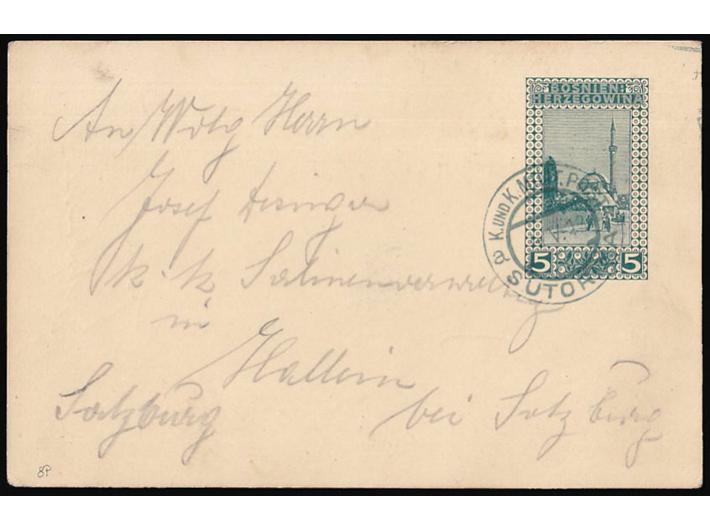 BOSNIEN-
HERZEGOWINA
5 5
K. UND K. MILIT. POST
SUTOR
An Wolg Herrn
Josef
k. k. Salinenverwaltung
in
Hallein
Salzburg bei Salzburg
8P